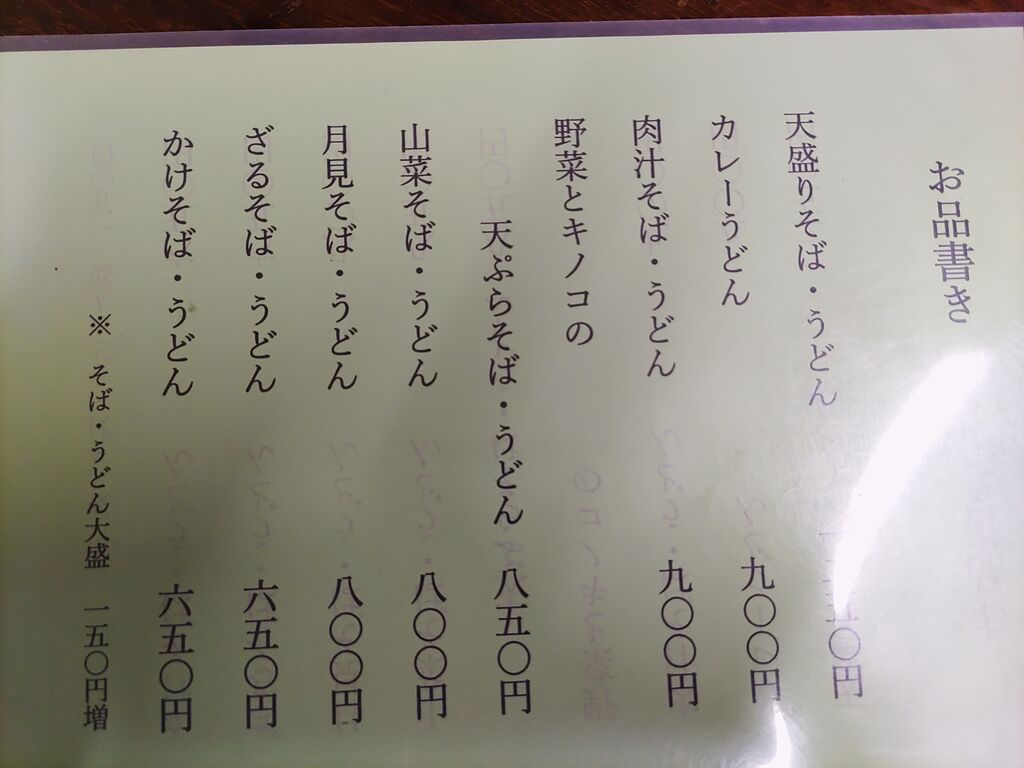 お品書き
天盛りそば・うどん 五〇円
カレーうどん 九〇〇円
肉汁そば・うどん 九〇〇円
野菜とキノコの
天ぷらそば・うどん 八五〇円
山菜そば・うどん 八〇〇円
月見そば・うどん 八〇〇円
ざるそば・うどん 六五〇円
かけそば・うどん 六五〇円
※そば・うどん大盛 一五〇円増